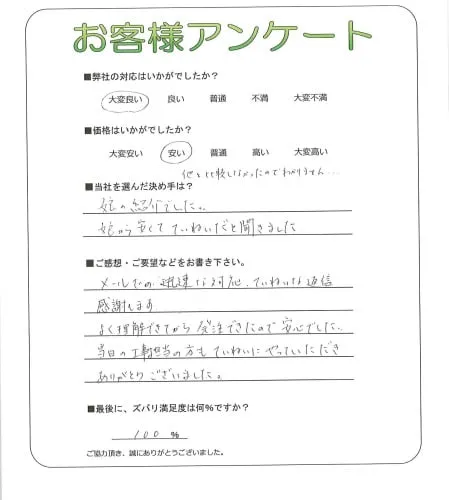 お客様アンケート
■弊社の対応はいかがでしたか?
大変良い 良い 普通 不満 大変不満
■価格はいかがでしたか?
大変安い 安い 普通 高い 大変高い
他と比較しなかったのでわかりません…
■当社を選んだ決め手は?
娘の紹介でした。
娘から安くてていねいだと聞きました
■ご感想・ご要望などをお書き下さい。
メールでの迅速な対応、ていねいな返信
感謝します
よく理解できてから発注できたので安心でした。
当日の工事担当の方もていねいにやっていただき
ありがとうございました。
■最後に、ズバリ満足度は何%ですか?
100 %
ご協力頂き、誠にありがとうございました。